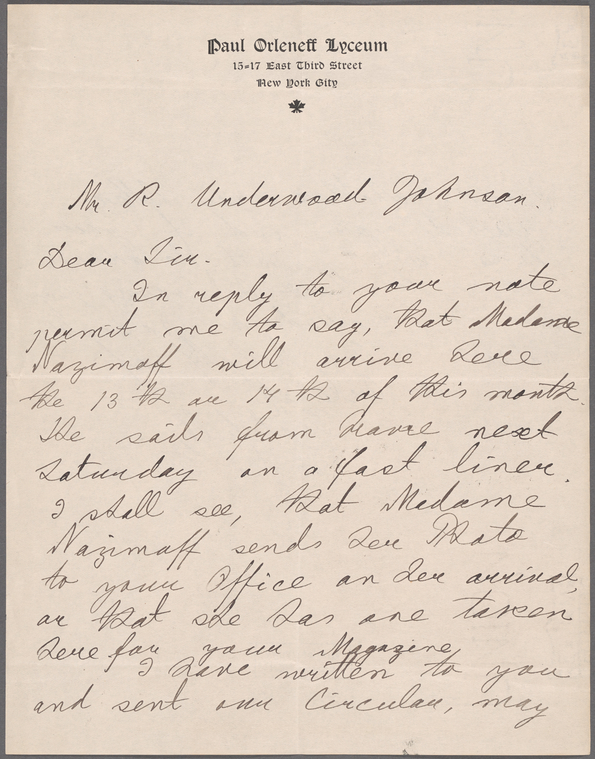 Paul Orleneff Lyceum
15-17 East Third Street
New York City
Mr. R. Underwood Johnson.
Dear Sir.
In reply to your note
permit me to say, that Madame
Nazimoff will arrive here
the 13th or 14th of this month.
She sails from Havre next
Saturday on a fast liner.
I shall see, that Madame
Nazimoff sends her Photo
to your Office on her arrival,
or that she has one taken
here for your Magazine
I have written to you
and sent our Circular, may